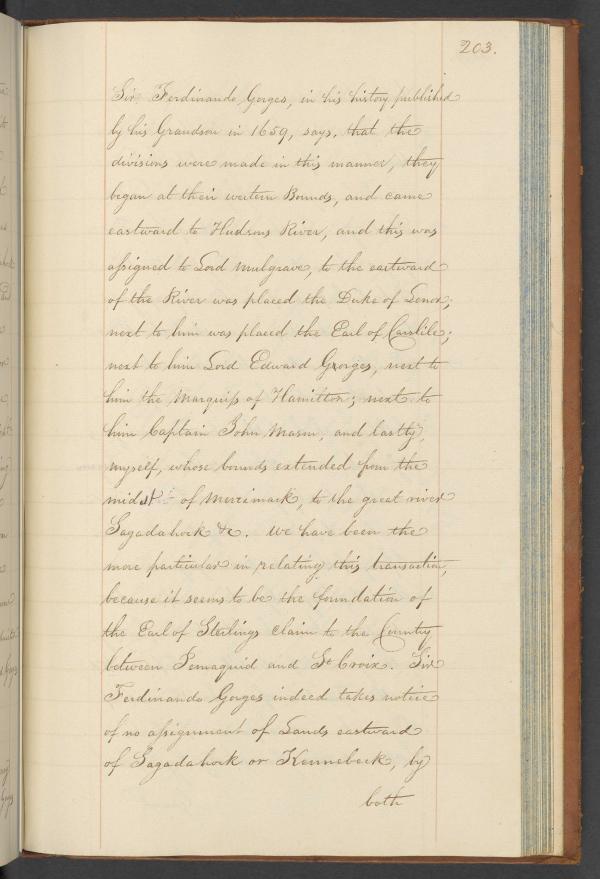 203.
Sir Ferdinando Gorges, in his history published
by his Grandson in 1659, says, that the
divisions were made in this manner, they
began at their western Bounds, and came
eastward to Hudsons River, and this was
assigned to Lord Mulgrave, to the eastward
of the River was placed the Duke of Lenox;
next to him was placed the Earl of Carslile;
next to him Lord Edward Gorges, next to
him the Marquiss of Hamilton; next to
him Captain John Mason, and lastly,
myself, whose bounds extended from the
midst of Merrimack, to the great river
Sagadahock &c. We have been the
more particular in relating this transaction,
because it seems to be the foundation of
the Earl of Sterlings claim to the Country
between Pemaquid and St Croix. Sir
Ferdinando Gorges indeed takes notice
of no assignment of Lands eastward
of Sagadahock or Kennebeck, by
both